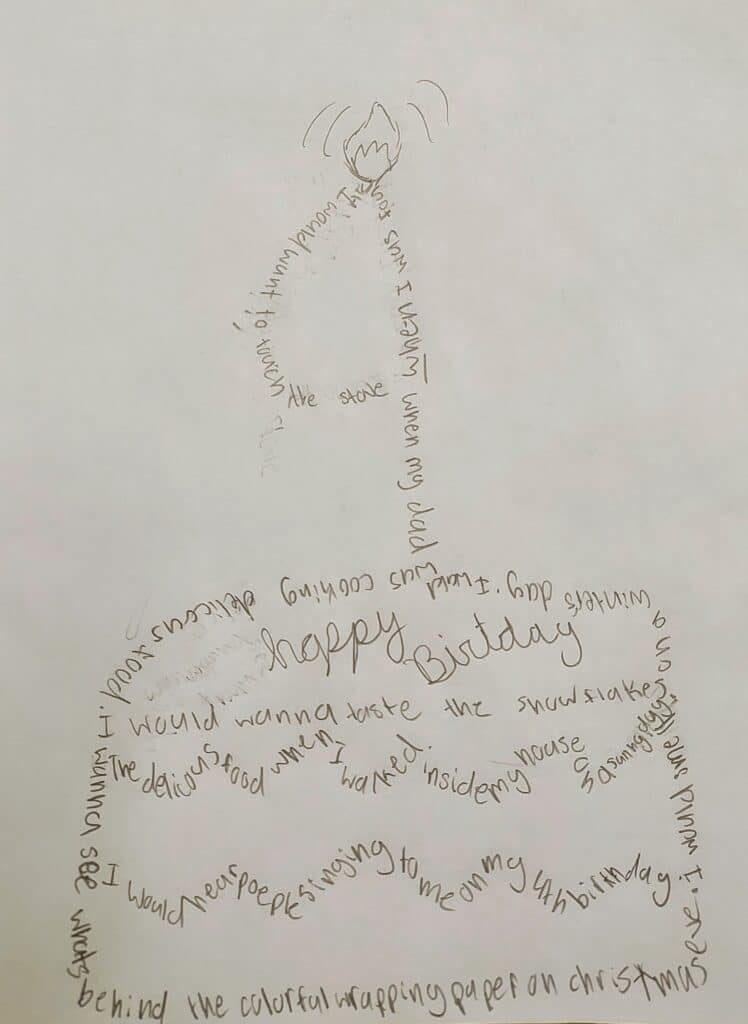 When I was four
I would want to touch
the stove
when my dad
was cooking delicous food.
happy Birtday
I would wanna taste the snowflakes
on a
winters day. I would
I wanna see whats
behind the colorful wrapping paper on christmas
eve. I would smell
The delicious food when I walked inside my house on a sunny day.
I would hear poeple singing to me on my 4th birthday